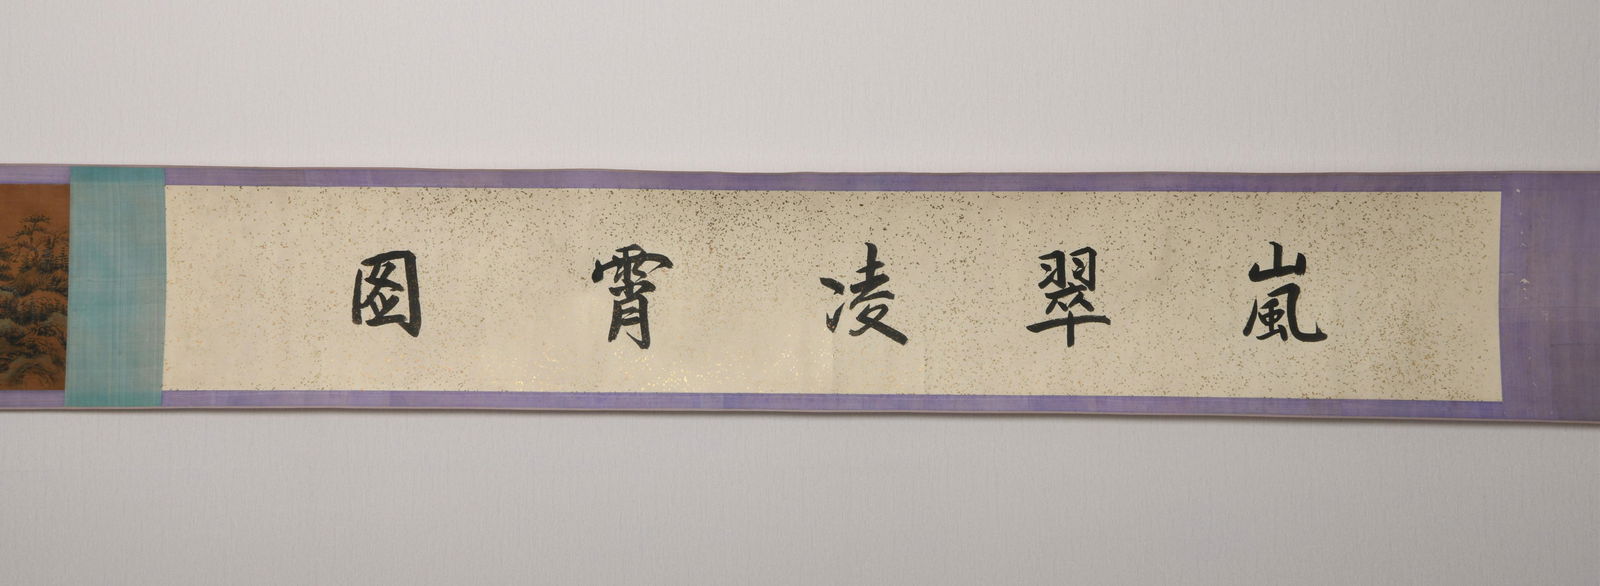 嵐翠凌霄图